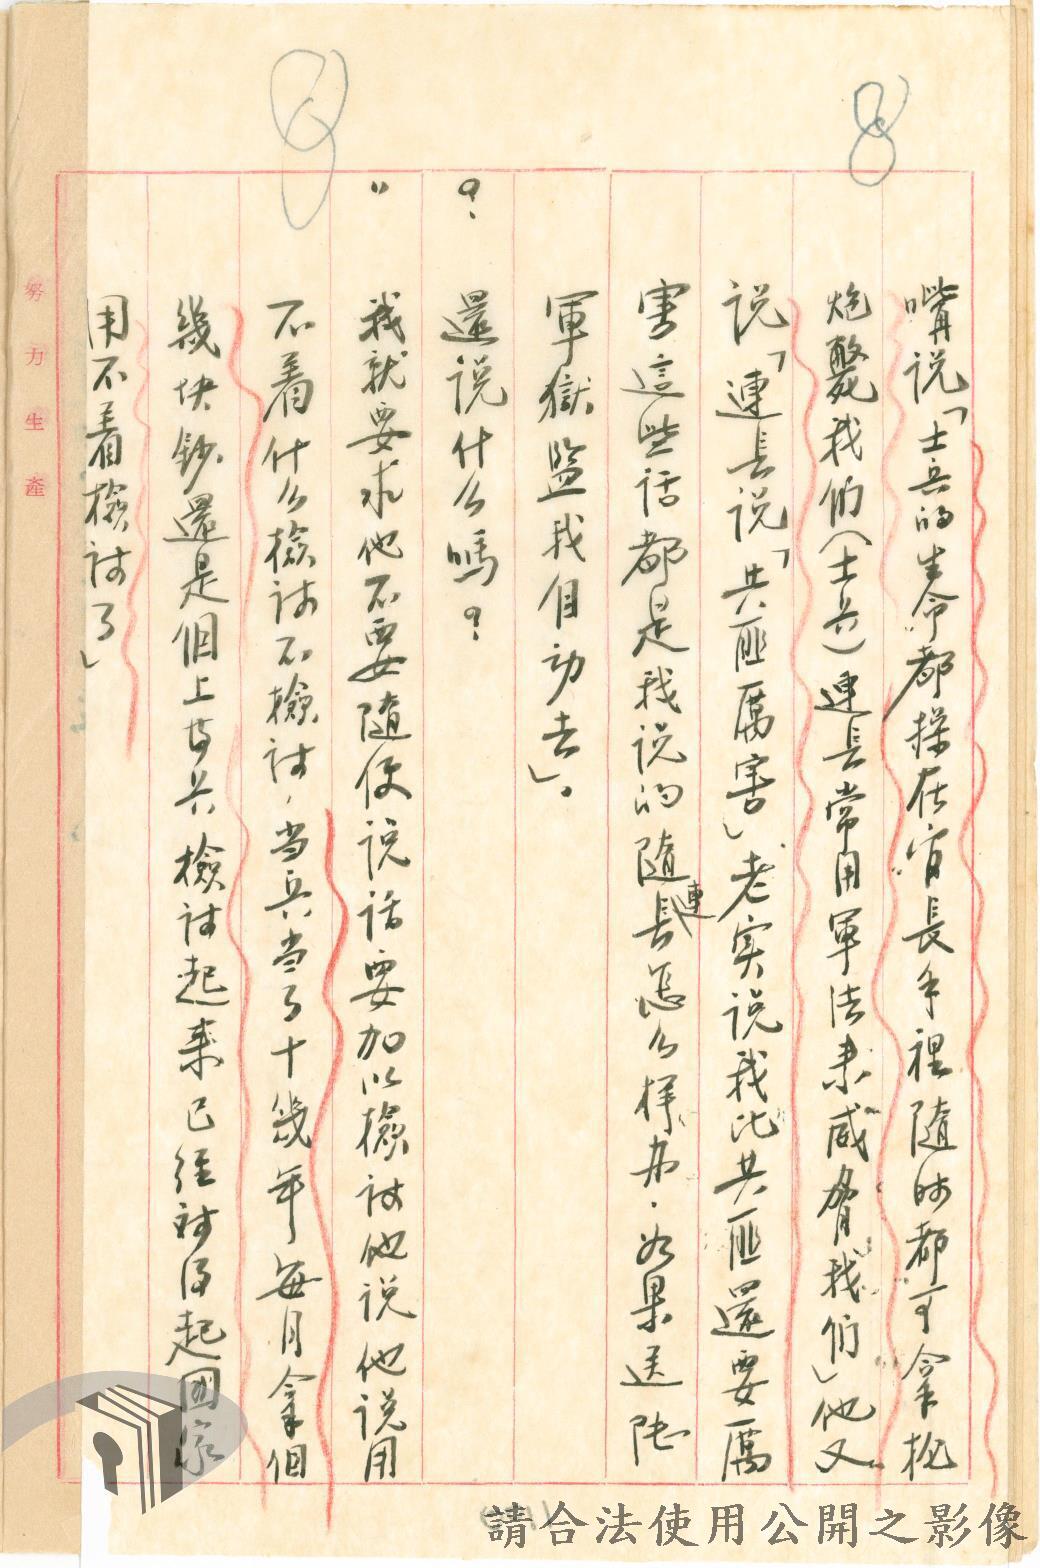 嘴说「士兵的生命都操在官長手裡隨時都可拿枪
炮斃我们(士兵)連長常用軍法来威脅我们」他又
说「連長说「共匪厲害」老实说我比共匪還要厲
害這些话都是我说的隨連長怎么样办.如果送陸
軍獄監我自动去」。
?還说什么嗎?
〃我就要求他不要隨便说话要加以檢讨他说他说用
不着什么檢讨不檢讨,当兵当了十幾年每月拿個
幾快鈔還是個上等兵檢讨起来已经对得起國家
用不着檢讨了」
8
努力生產
請合法使用公開之影像